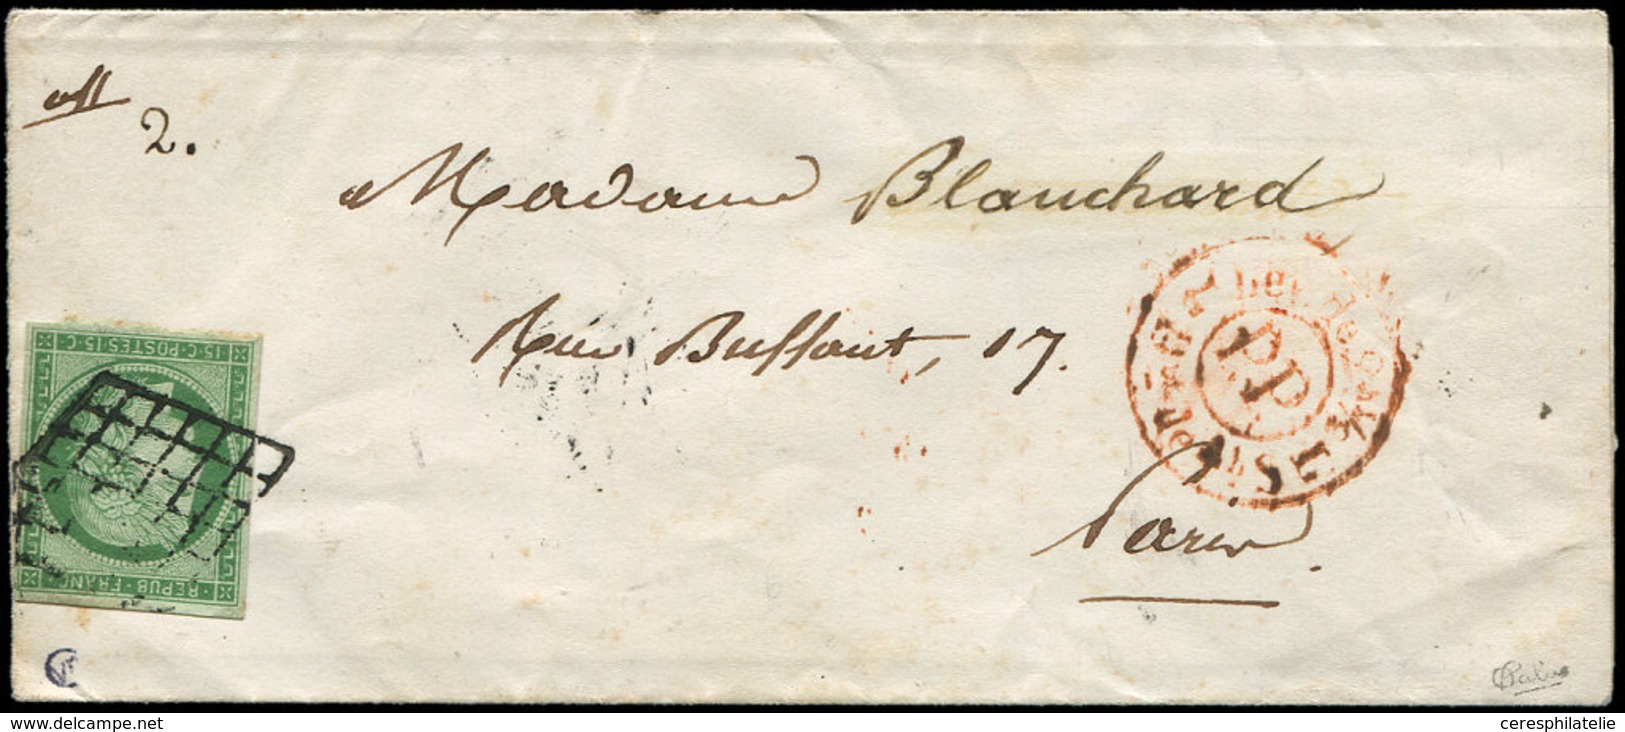 off
2.
Madame Blanchard
Rue Buffaut, 17.
Paris.
15·C·POSTES·15·C
REPUB·FRANC
P.P.
www.delcampe.net
ceresphilatelie